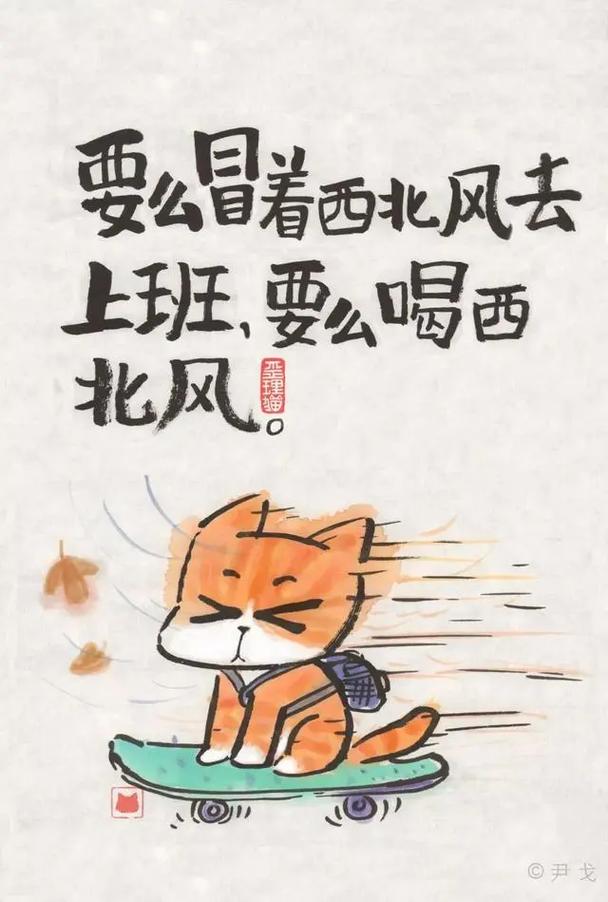 要么冒着西北风去
上班、要么喝西
北风。
歪理猫
©尹戈